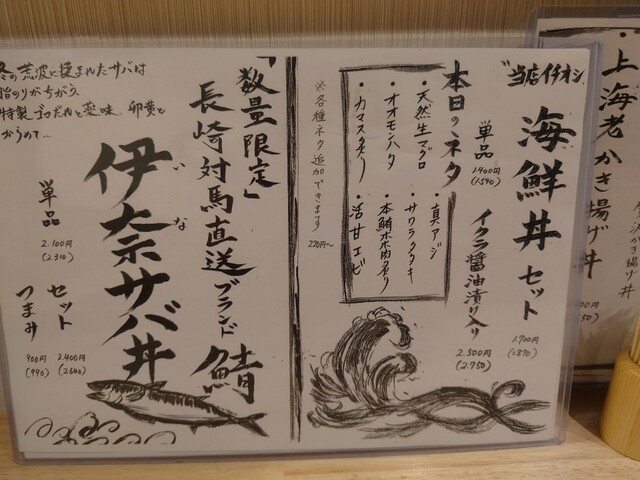 "当店イチオシ"
海鮮丼セット
1.700円
(1.870)
単品
1.400円
(1.540)
イクラ醤油漬け入り
2.500円
(2.750)
本日のネタ
・天然生マグロ
・オオモンハタ
・カマス炙り
・真アジ
・サワラタタキ
・本鮪ホホ肉炙り
・活甘エビ
※各種ネタ追加できます
220円〜
「数量限定」
長崎対馬直送ブランド鯖
伊奈サバ丼
いな
単品
2.100円
(2.310)
セット
2.400円
(2.640)
つまみ
900円
(990)
冬の荒波に揉まれたサバは
脂のりがちがう
特製ゴマだれと薬味、卵黄と
からめて...
・上海老かき揚げ丼
かき揚げ丼